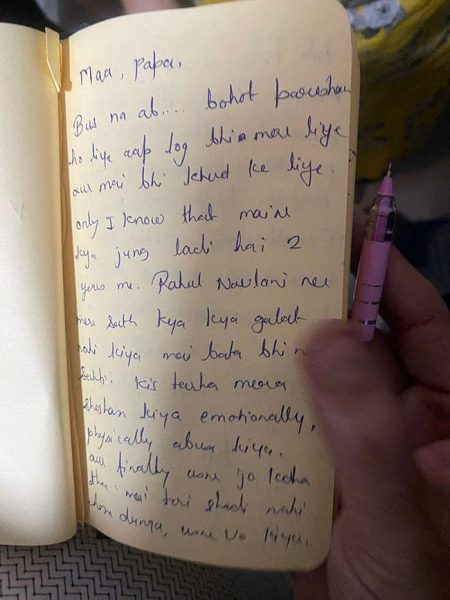 Maa, Papa,
Bus na ab.... bohot pareshan
ho liye aap log bhi mere liye
aur mai bhi khud ke liye.
only I know that maine
kya jung ladi hai 2
years me. Rahul Navlani nee
mere sath kya kya galat
nahi kiya mai bata bhi n
sakti. Kis tarha meera
shoshan kiya emotionally,
physically abuse kiya.
aur finally usne jo kaha
tha mai teri shadi nahi
hone dunga, usne vo kiya.